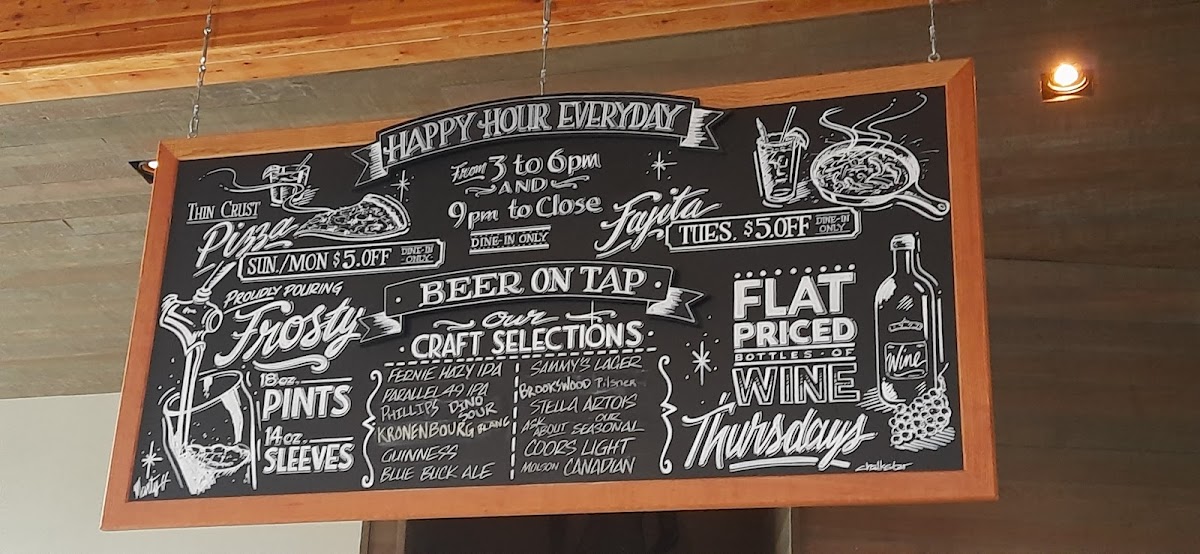 HAPPY HOUR EVERYDAY
From 3 to 6pm
AND
9pm to Close
DINE-IN ONLY
THIN CRUST
Pizza
SUN./MON $5.OFF DINE-IN ONLY
Fajita
TUES. $5.OFF DINE-IN ONLY
PROUDLY POURING
Frosty
18 oz.
PINTS
14 oz.
SLEEVES
BEER ON TAP
our
CRAFT SELECTIONS
FERNIE HAZY IPA
PARALLEL 49 IPA
PHILLIPS DINO SOUR
KRONENBOURG BLANC
GUINNESS
BLUE BUCK ALE
SAMMY'S LAGER
BROOKSWOOD Pilsner
STELLA ARTOIS
ASK ABOUT OUR SEASONAL
COORS LIGHT
MOLSON CANADIAN
FLAT
PRICED
BOTTLES OF
WINE
Thursdays
Wine
chalkstar